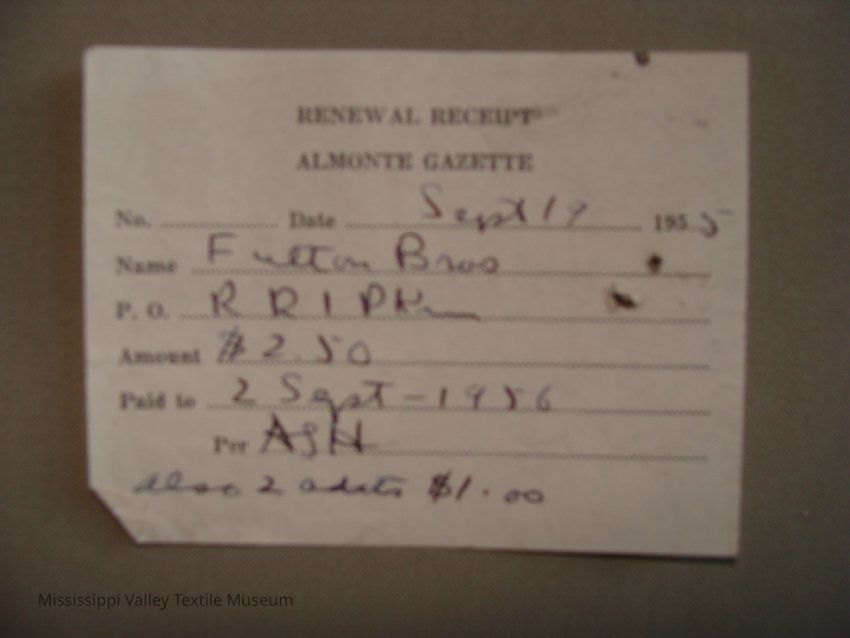 RENEWAL RECEIPT
ALMONTE GAZETTE
No. Date Sept 19 1955
Name Fulton Bros
P. O. R R 1
Amount $2.50
Paid to 2 Sept - 1956
Per ASH
also 2 $1.00
Mississippi Valley Textile Museum